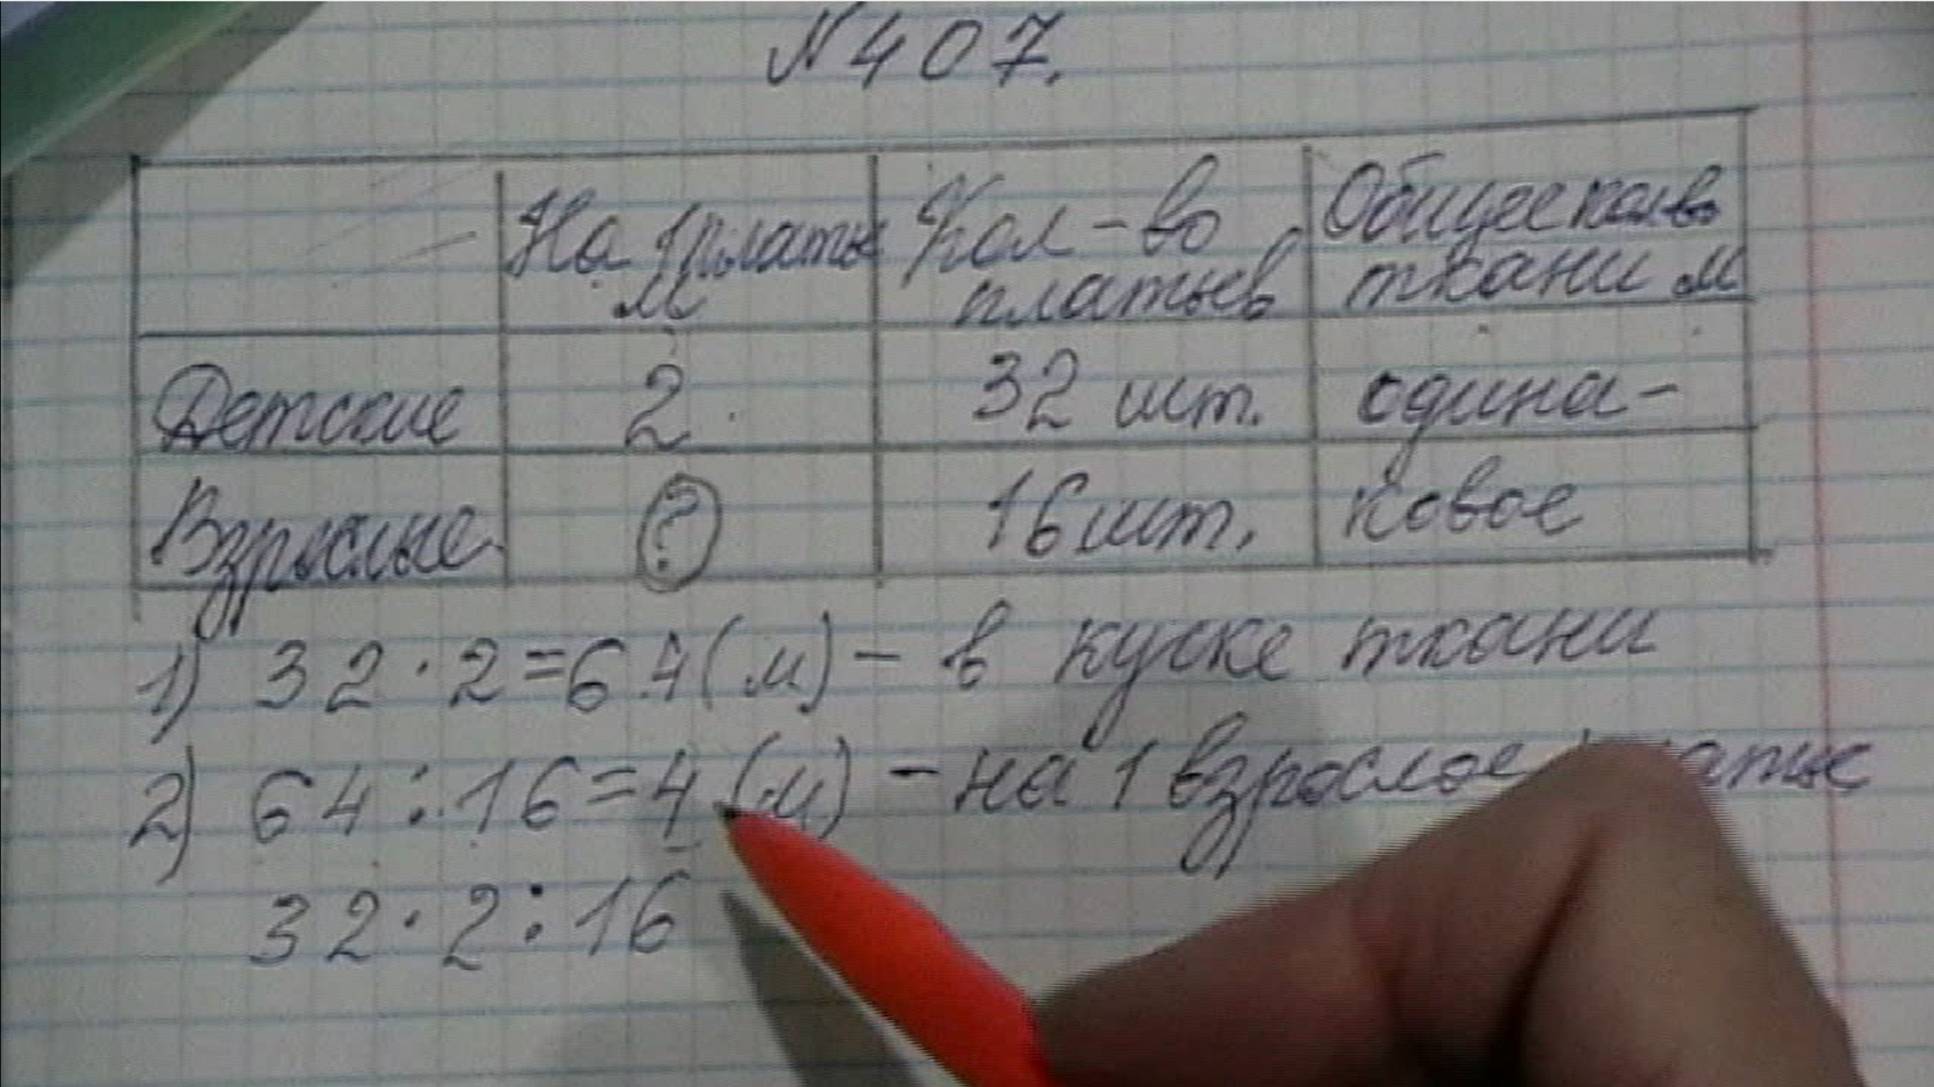 № 407.
На 1 платье м
Кол-во платьев
Общее кол-во ткани м
Детские 2 32 шт. одина-
Взрослые ? 16 шт. ковое
1) 32 · 2 = 64 (м) - в куске ткани
2) 64 : 16 = 4 (м) - на 1 взрослое
32 · 2 : 16